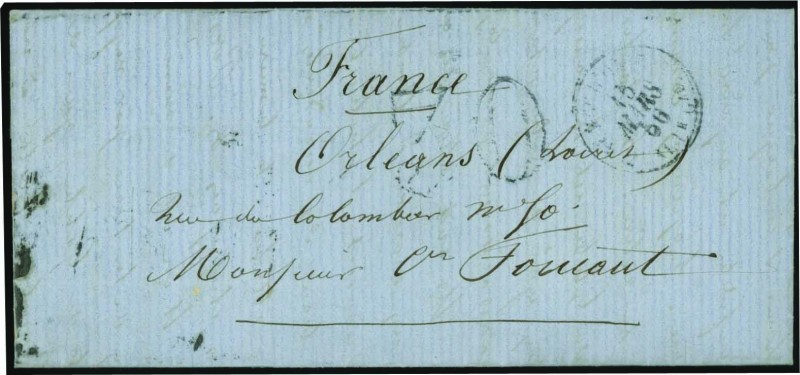 France
Orléans (Loiret)
Rue du Colombier nº 50.
Monsieur Foucaut
15
MARS